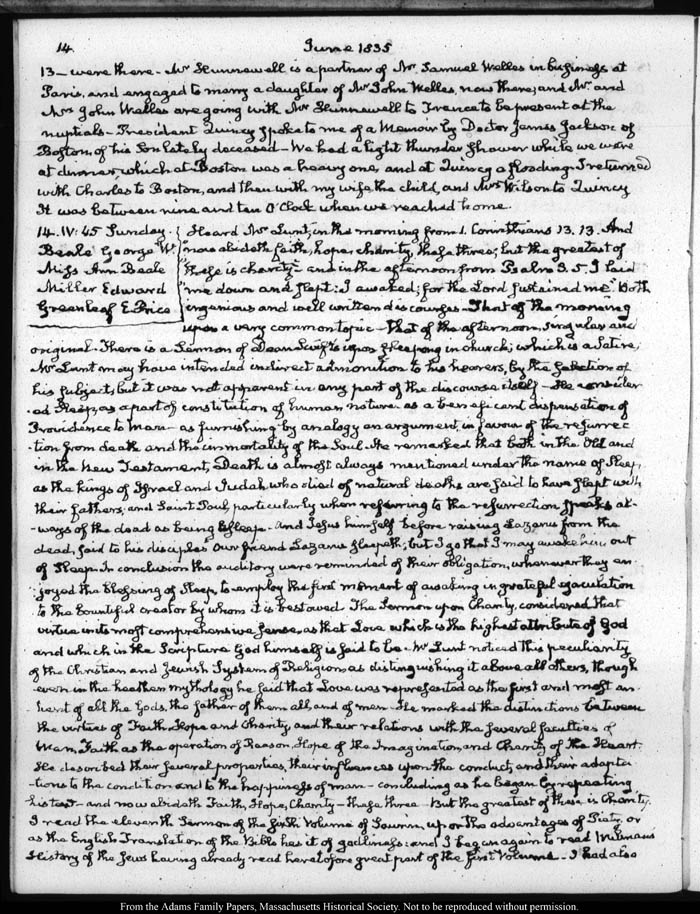 14
June 1835
13 – were there – Mr Hunnewell is a partner of Mr Samuel Welles in business at
Paris, and engaged to marry a daughter of Mr John Welles, now there; and Mr and
Mrs John Welles are going with Mr Hunnewell to France to be present at the
nuptials – President Quincy spoke to me of a Memoir by Doctor James Jackson of
Boston, of his Son lately deceased – We had a light thunder shower while we were
at dinner, which at Boston was a heavy one, and at Quincy a flooding. I returned
with Charles to Boston, and then with my wife, the child, and Mrs Wilson to Quincy
It was between nine and ten O'Clock when we reached home.
14. IV: 45 Sunday.
Beale George W.
Miss Ann Beale
Miller Edward
Greenleaf E. Price
Heard Mr Lunt, in the morning from 1. Corinthians 13. 13. And
now abideth faith, hope, charity, these three; but the greatest of
these is charity – and in the afternoon from Psalm 3. 5. I laid
me down and slept: I awaked; for the Lord sustained me. Both
ingenious and well written discourses – That of the morning
upon a very common topic – that of the afternoon, singular and
original. There is a Sermon of Dean Swift's upon sleeping in church; which is a satire;
Mr Lunt may have intended indirect admonition to his hearers, by the selection of
his subject, but it was not apparent in any part of the discourse itself – He consider
-ed Sleep as a part of constitution of human nature as a beneficent dispensation of
Providence to Man – as furnishing by analogy an argument in favour of the resurrec
-tion from death and the immortality of the Soul. He remarked that both in the Old and
in the New Testament, Death is almost always mentioned under the name of Sleep,
as the kings of Israel and Judah who died of natural deaths are said to have slept with
their fathers; and Saint Paul, particularly when referring to the resurrection speaks al-
-ways of the dead as being asleep. And Jesus himself before raising Lazarus from the
dead, said to his disciples Our friend Lazarus sleepeth; but I go that I may awake him out
of Sleep. In conclusion the auditory were reminded of their obligation, whenever they en
joyed the blessing of Sleep, to employ the first moment of awaking in grateful ejaculation
to the bountiful creator by whom it is bestowed. The Sermon upon Charity, considered that
virtue in its most comprehensive sense, as that Love which is the highest attribute of God
and which in the Scripture God himself is said to be. Mr Lunt noticed this peculiarity
of the Christian and Jewish System of Religion as distinguishing it above all others, though
even in the heathen mythology he said that Love was represented as the first and most an-
-tient of all the Gods, the father of them all, and of men – He marked the distinctions between
the virtues of Faith, Hope and Charity, and their relations with the several faculties of
Man, Faith as the operation of Reason, Hope of the Imagination, and Charity of the Heart.
He described their several properties, their influences upon the conduct, and their adapta
-tions to the condition and to the happiness of man – concluding as he began by repeating
his text – and now abideth Faith, Hope, Charity – these three – But the greatest of these is Charity.
I read the eleventh Sermon of the sixth Volume of Saurin, upon the advantages of Piety, or
as the English Translation of the Bible has it of godliness: and I began again to read Milman's
History of the Jews having already read heretofore great part of the first Volume – I had also
From the Adams Family Papers, Massachusetts Historical Society. Not to be reproduced without permission.